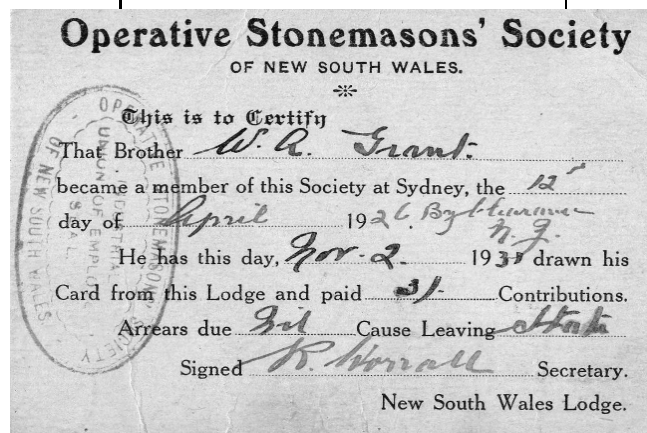 Operative Stonemasons' Society
OF NEW SOUTH WALES.
This is to Certify
That Brother W. A. Grant.
became a member of this Society at Sydney, the 12
day of April 1926 By
N.Z.
He has this day, Nov. 2. 193 drawn his
Card from this Lodge and paid 3/- Contributions.
Arrears due Nil Cause Leaving
Signed R. Worrall Secretary.
New South Wales Lodge.
OPERATIVE STONEMASONS' SOCIETY OF NEW SOUTH WALES
INDUSTRIAL
UNION OF EMPLOY
SEAL